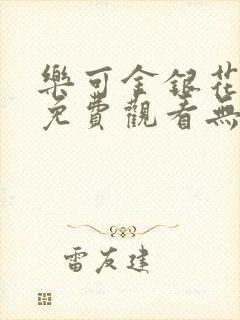 樂可金銀花
免費觀看無
雷友建